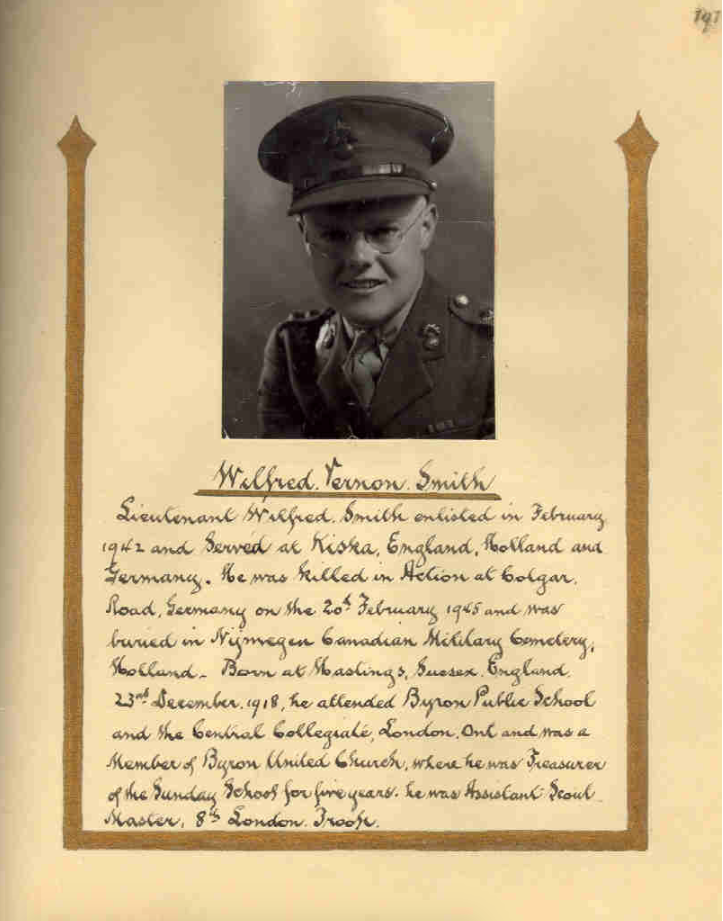 197
Wilfred. Vernon. Smith
Lieutenant Wilfred. Smith enlisted in February
1942 and Served at Kiska, England, Holland and
Germany. He was Killed in Action at Colgar.
Road, Germany on the 20th February 1945 and was
buried in Nijmegen Canadian Military Cemetery,
Holland - Born at Hastings, Sussex. England.
23rd December, 1918, he attended Byron Public School
and the Central Collegiate, London, Ont and was a
Member of Byron United Church, where he was Treasurer
of the Sunday School for five years. he was Assistant Scout
Master, 8th London. Troop.